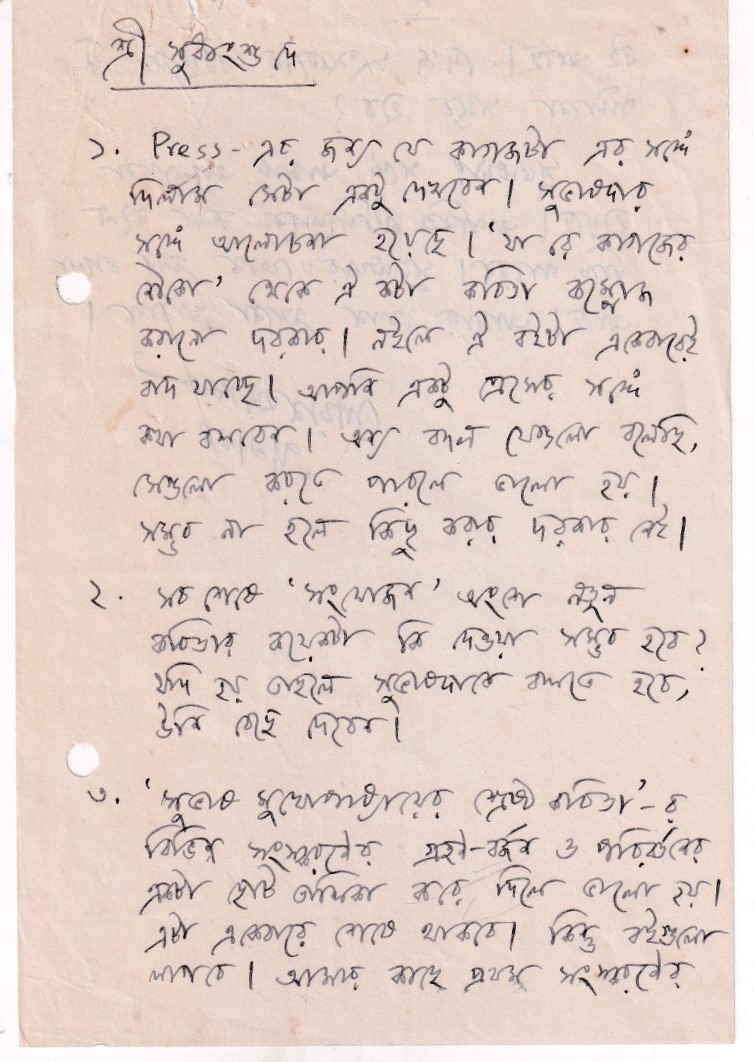 শ্রী সুধাংশু দে
১. Press-এর জন্য যে কাগজটা এর সঙ্গে
দিলাম সেটা একটু দেখবেন। সুভাষদার
সঙ্গে আলোচনা হয়েছে। 'যা রে কাগজের
নৌকো' থেকে ঐ কটা কবিতা কম্পোজ
করানো দরকার। নইলে ঐ বইটা একেবারেই
বাদ যাচ্ছে। আপনি একটু প্রেসের সঙ্গে
কথা বলবেন। অন্য বদল যেগুলো বলেছি,
সেগুলো করতে পারলে ভালো হয়।
সম্ভব না হলে কিছু করার দরকার নেই।
২. সব শেষে 'সংযোজন' অংশে নতুন
কবিতার কয়েকটা কি দেওয়া সম্ভব হবে?
যদি হয় তাহলে সুভাষদাকে বলতে হবে,
উনি বেছে দেবেন।
৩. 'সুভাষ মুখোপাধ্যায়ের শ্রেষ্ঠ কবিতা'-র
বিভিন্ন সংস্করণের গ্রহণ-বর্জন ও পরিবর্তনের
একটা ছোট তালিকা করে দিলে ভালো হয়।
এটা একেবারে শেষে থাকবে। কিন্তু বইগুলো
লাগবে। আমার কাছে প্রথম সংস্করণের